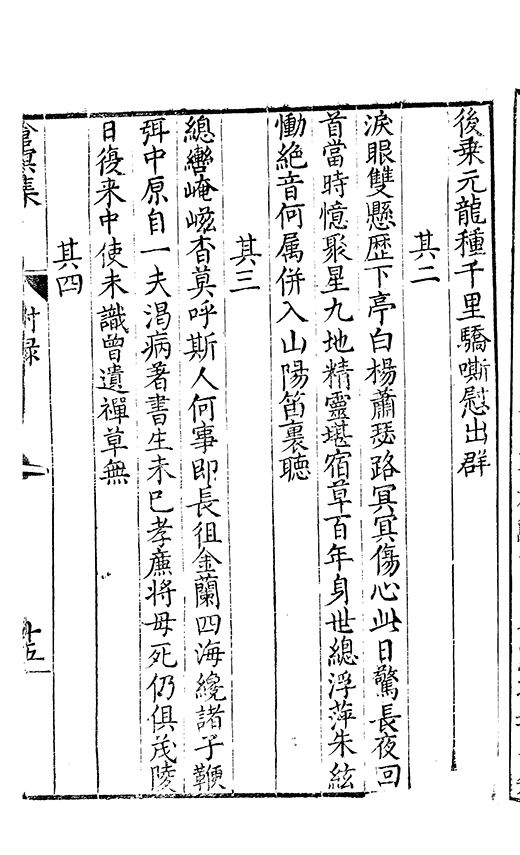 後乗元龍種千里驕嘶慰出群
其二
淚眼雙懸歴下亭白楊蕭瑟路冥冥傷心此日驚長夜回
首當時憶聚星九地精靈堪宿草百年身世總浮萍朱絃
慟絶音何属併入山陽笛裏聽
其三
總轡崦嵫杳莫呼斯人何事即長徂金蘭四海纔諸子鞭
弭中原自一夫渴病著書生未已孝廉将母死仍俱茂陵
日復来中使未識曾遺禪草無
其四
滄溟集 附録 十五